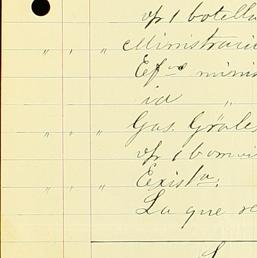 vp 1 botella
" " " Ministraci
Efos mini
id "
" " " Gas. Grales
vp 1 bom
Exista.
La que re